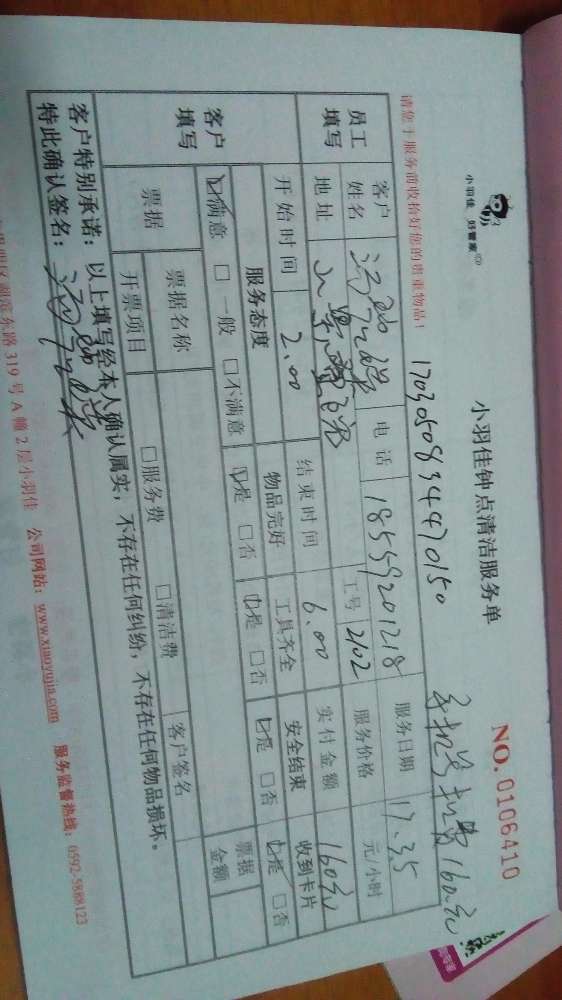 小羽佳 好管家
小羽佳钟点清洁服务单
NO. 0106410
请您于服务前收拾好您的贵重物品！
170305083447050
手机号扣费160元
员工填写
客户姓名
电话 18559201218
服务日期 17.3.5
地址
工号 2102
服务价格 元/小时
开始时间 2.00
结束时间 6.00
实付金额 160元
客户填写
服务态度 物品完好 工具齐全 安全结束 收到卡片
☑满意 □一般 □不满意 ☑是 □否 ☑是 □否 ☑是 □否 ☑是 □否
票据 票据名称 □服务费 □清洁费 客户签名 票据金额
开票项目
客户特别承诺：以上填写经本人确认属实，不存在任何纠纷，不存在任何物品损坏。
特此确认签名：
东路319号A幢2层小羽佳 公司网站：www.xiaoyujia.com 服务监督热线：0592-5888123